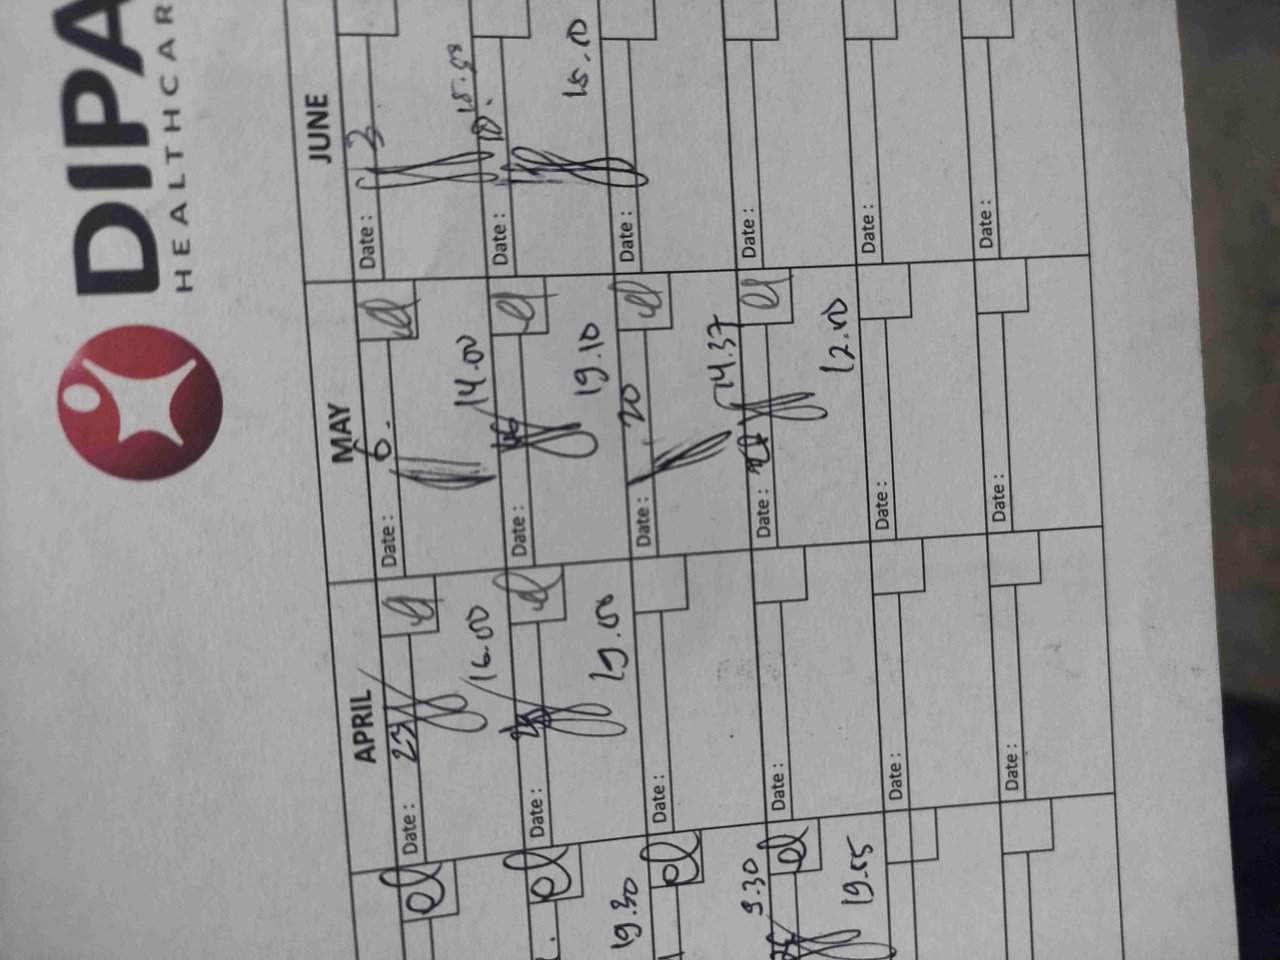 DIPA
HEALTHCAR
19.30
9.30
19.55
APRIL
Date : 23
16.00
Date :
19.00
Date :
Date :
Date :
Date :
MAY
Date : 6.
14.00
Date : 16
19.10
Date : 20
14.37
Date :
12.00
Date :
Date :
JUNE
Date : 3
Date : 10.
15.00
Date :
Date :
Date :
Date :